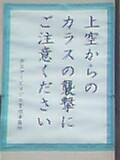 上空からの
カラスの襲撃に
ご注意ください